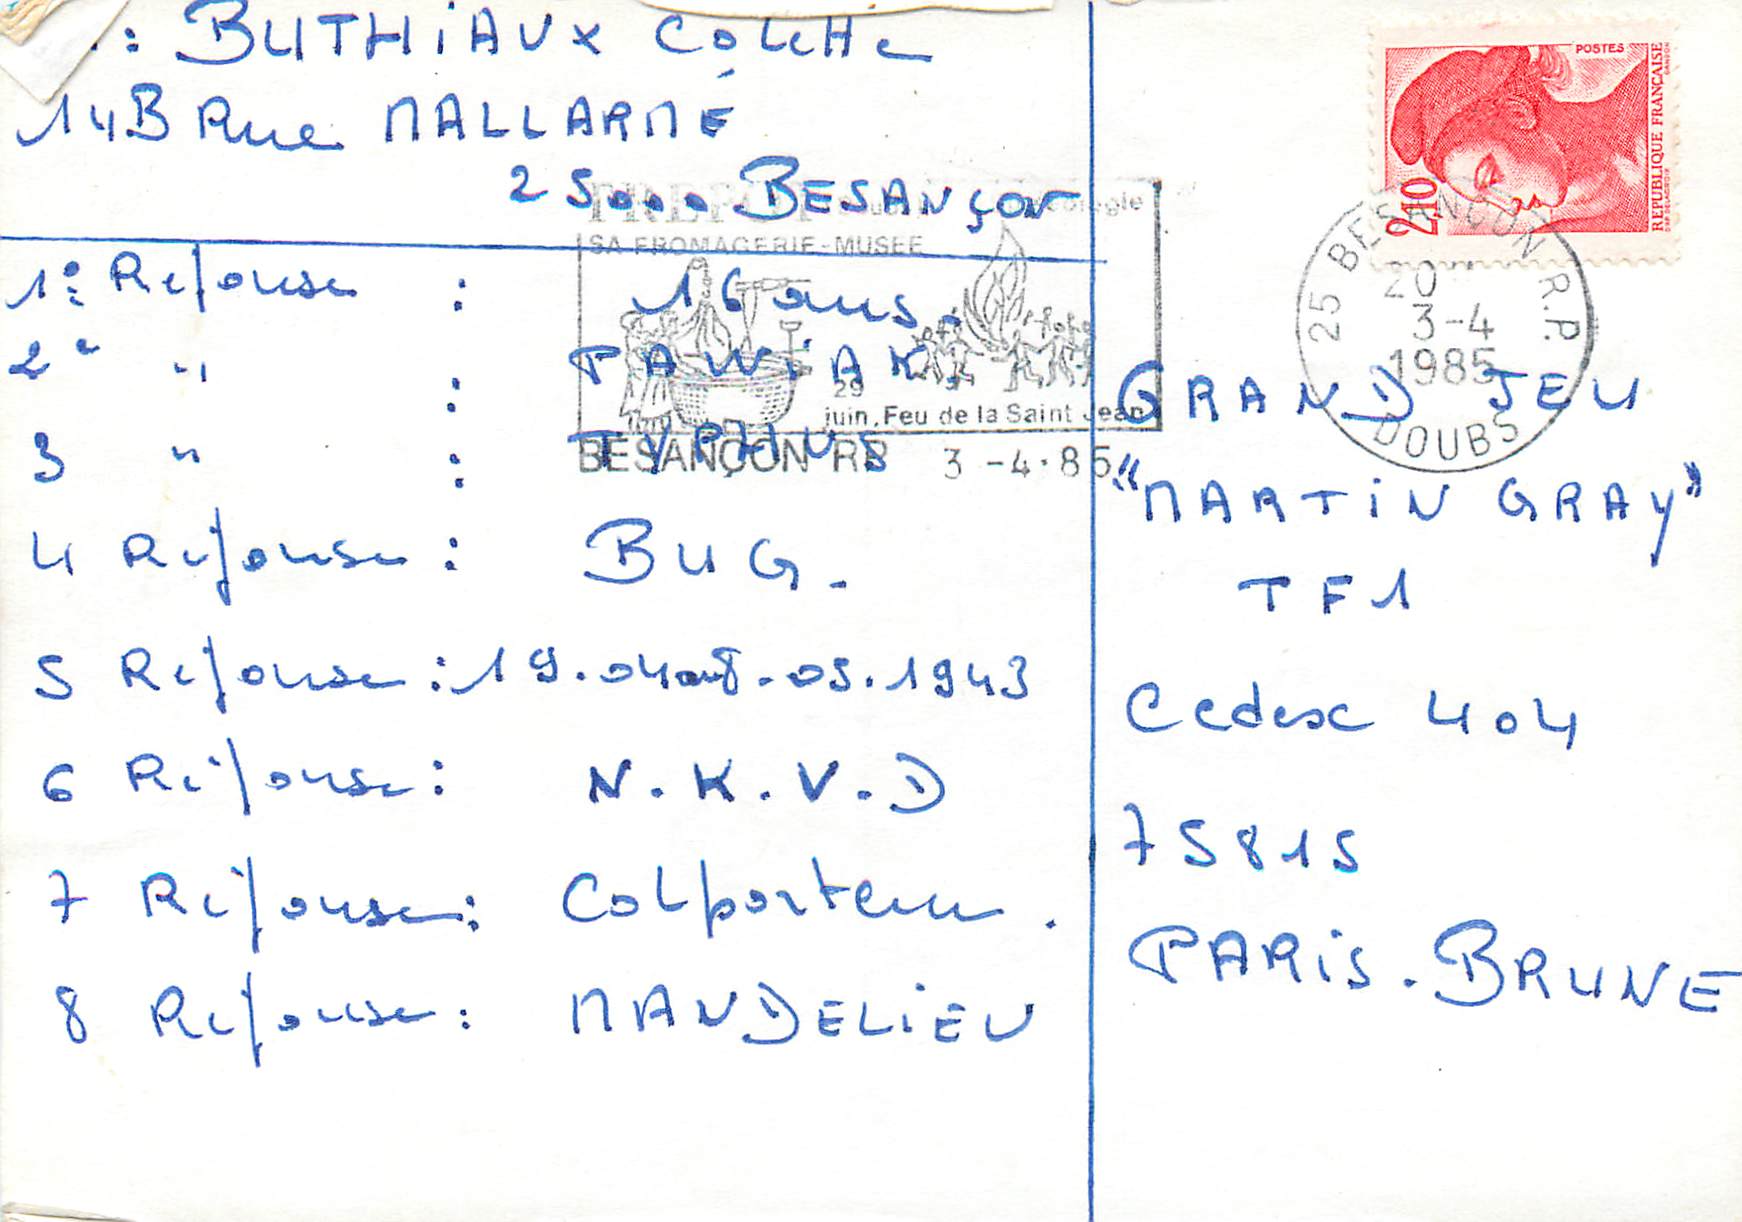 : BUTHiAUX Colette
14B Rue MALLARMÉ
25000 BESANÇON
SA FROMAGERIE-MUSEE
29
juin. Feu de la Saint Jean
BESANÇON RP 3 -4-85
1º: Réponse : 16 ans.
2º " : PAWiAK.
3 " : TYPHUS
4 Réponse : BUG.
5 Réponse : 19.04 au 8.05.1943
6 Réponse : N.K.V.D
7 Réponse : Colporteur.
8 Réponse : MANDELiEU
POSTES
REPUBLIQUE FRANÇAISE
2,10
25 BESANÇON R.P.
20
3-4
1985
DOUBS
GRAND JEU
"MARTiN GRAY"
TF1
Cedex 404
75815
PARiS.BRUNE